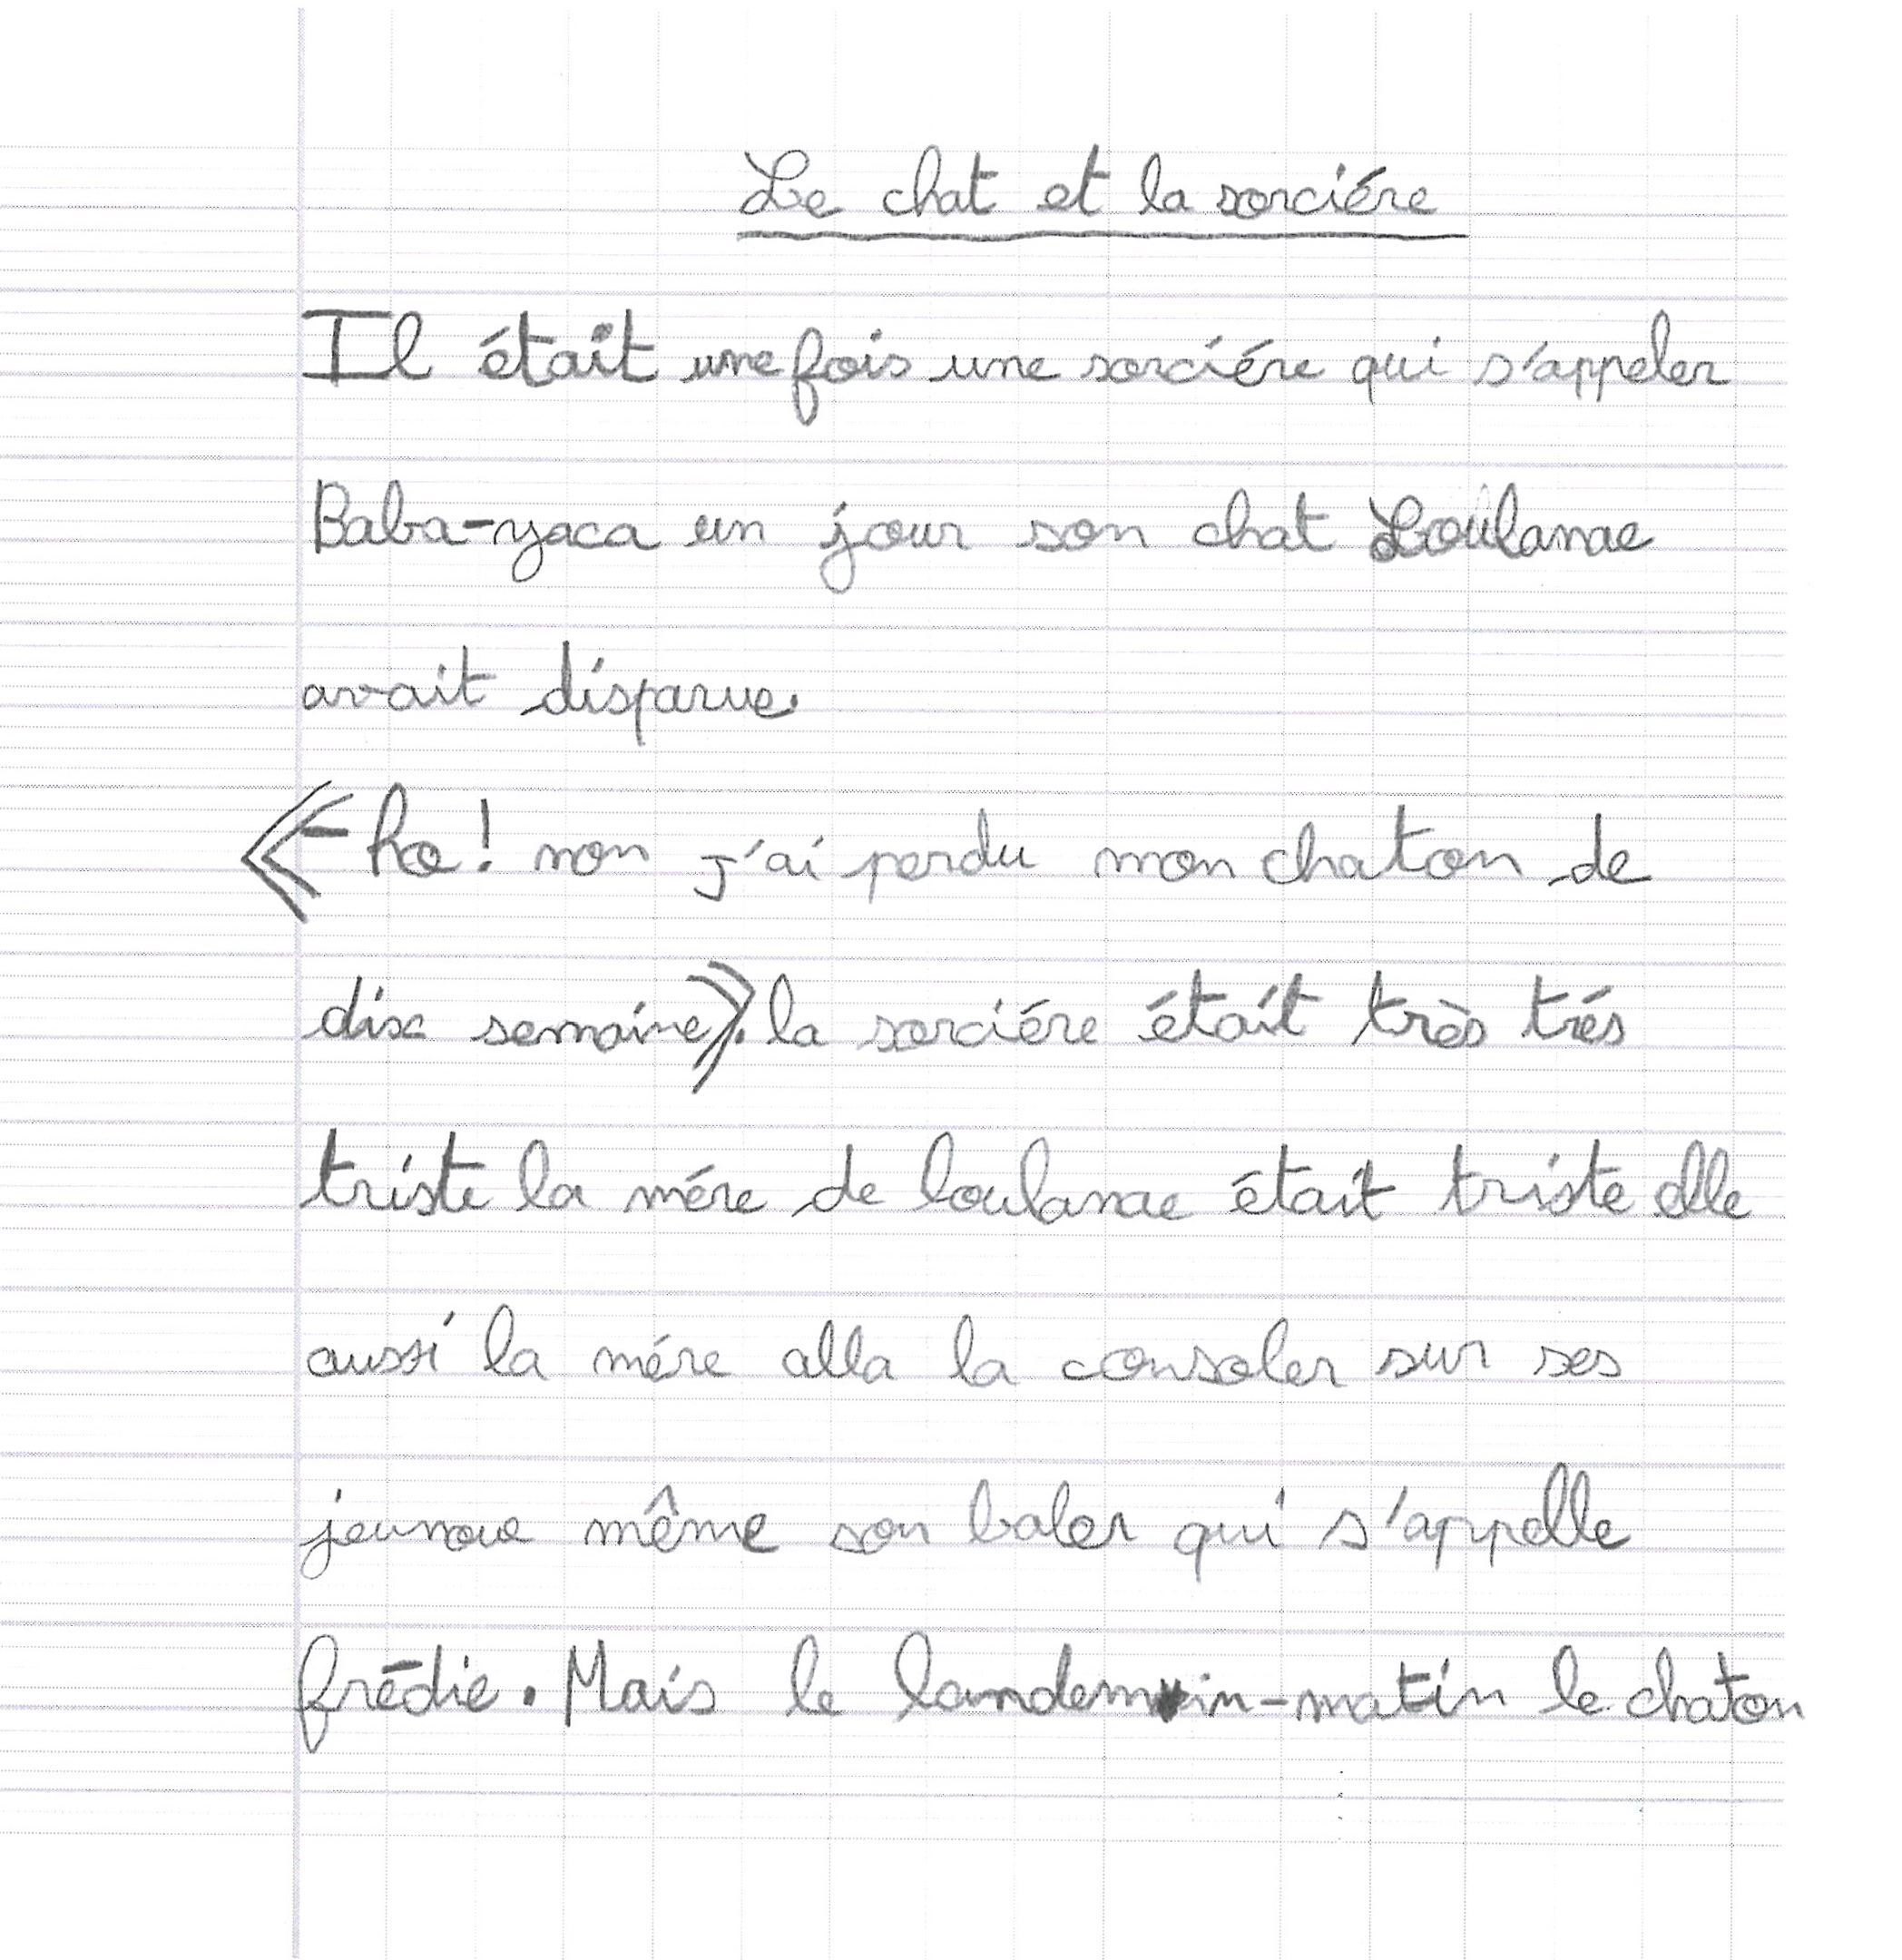 Le chat et la sorciére
Il était une fois une sorciére qui s'appeler
Baba-yaca un jour son chat Loulanae
avait disparue.
« - ho! non j'ai perdu mon chaton de
dix semaine ». la sorciére était très trés
triste la mére de loulanae était triste elle
aussi la mére alla la consoler sur ses
jeunoue même son baler qui s'appelle
frédie. Mais le landemin-matin le chaton